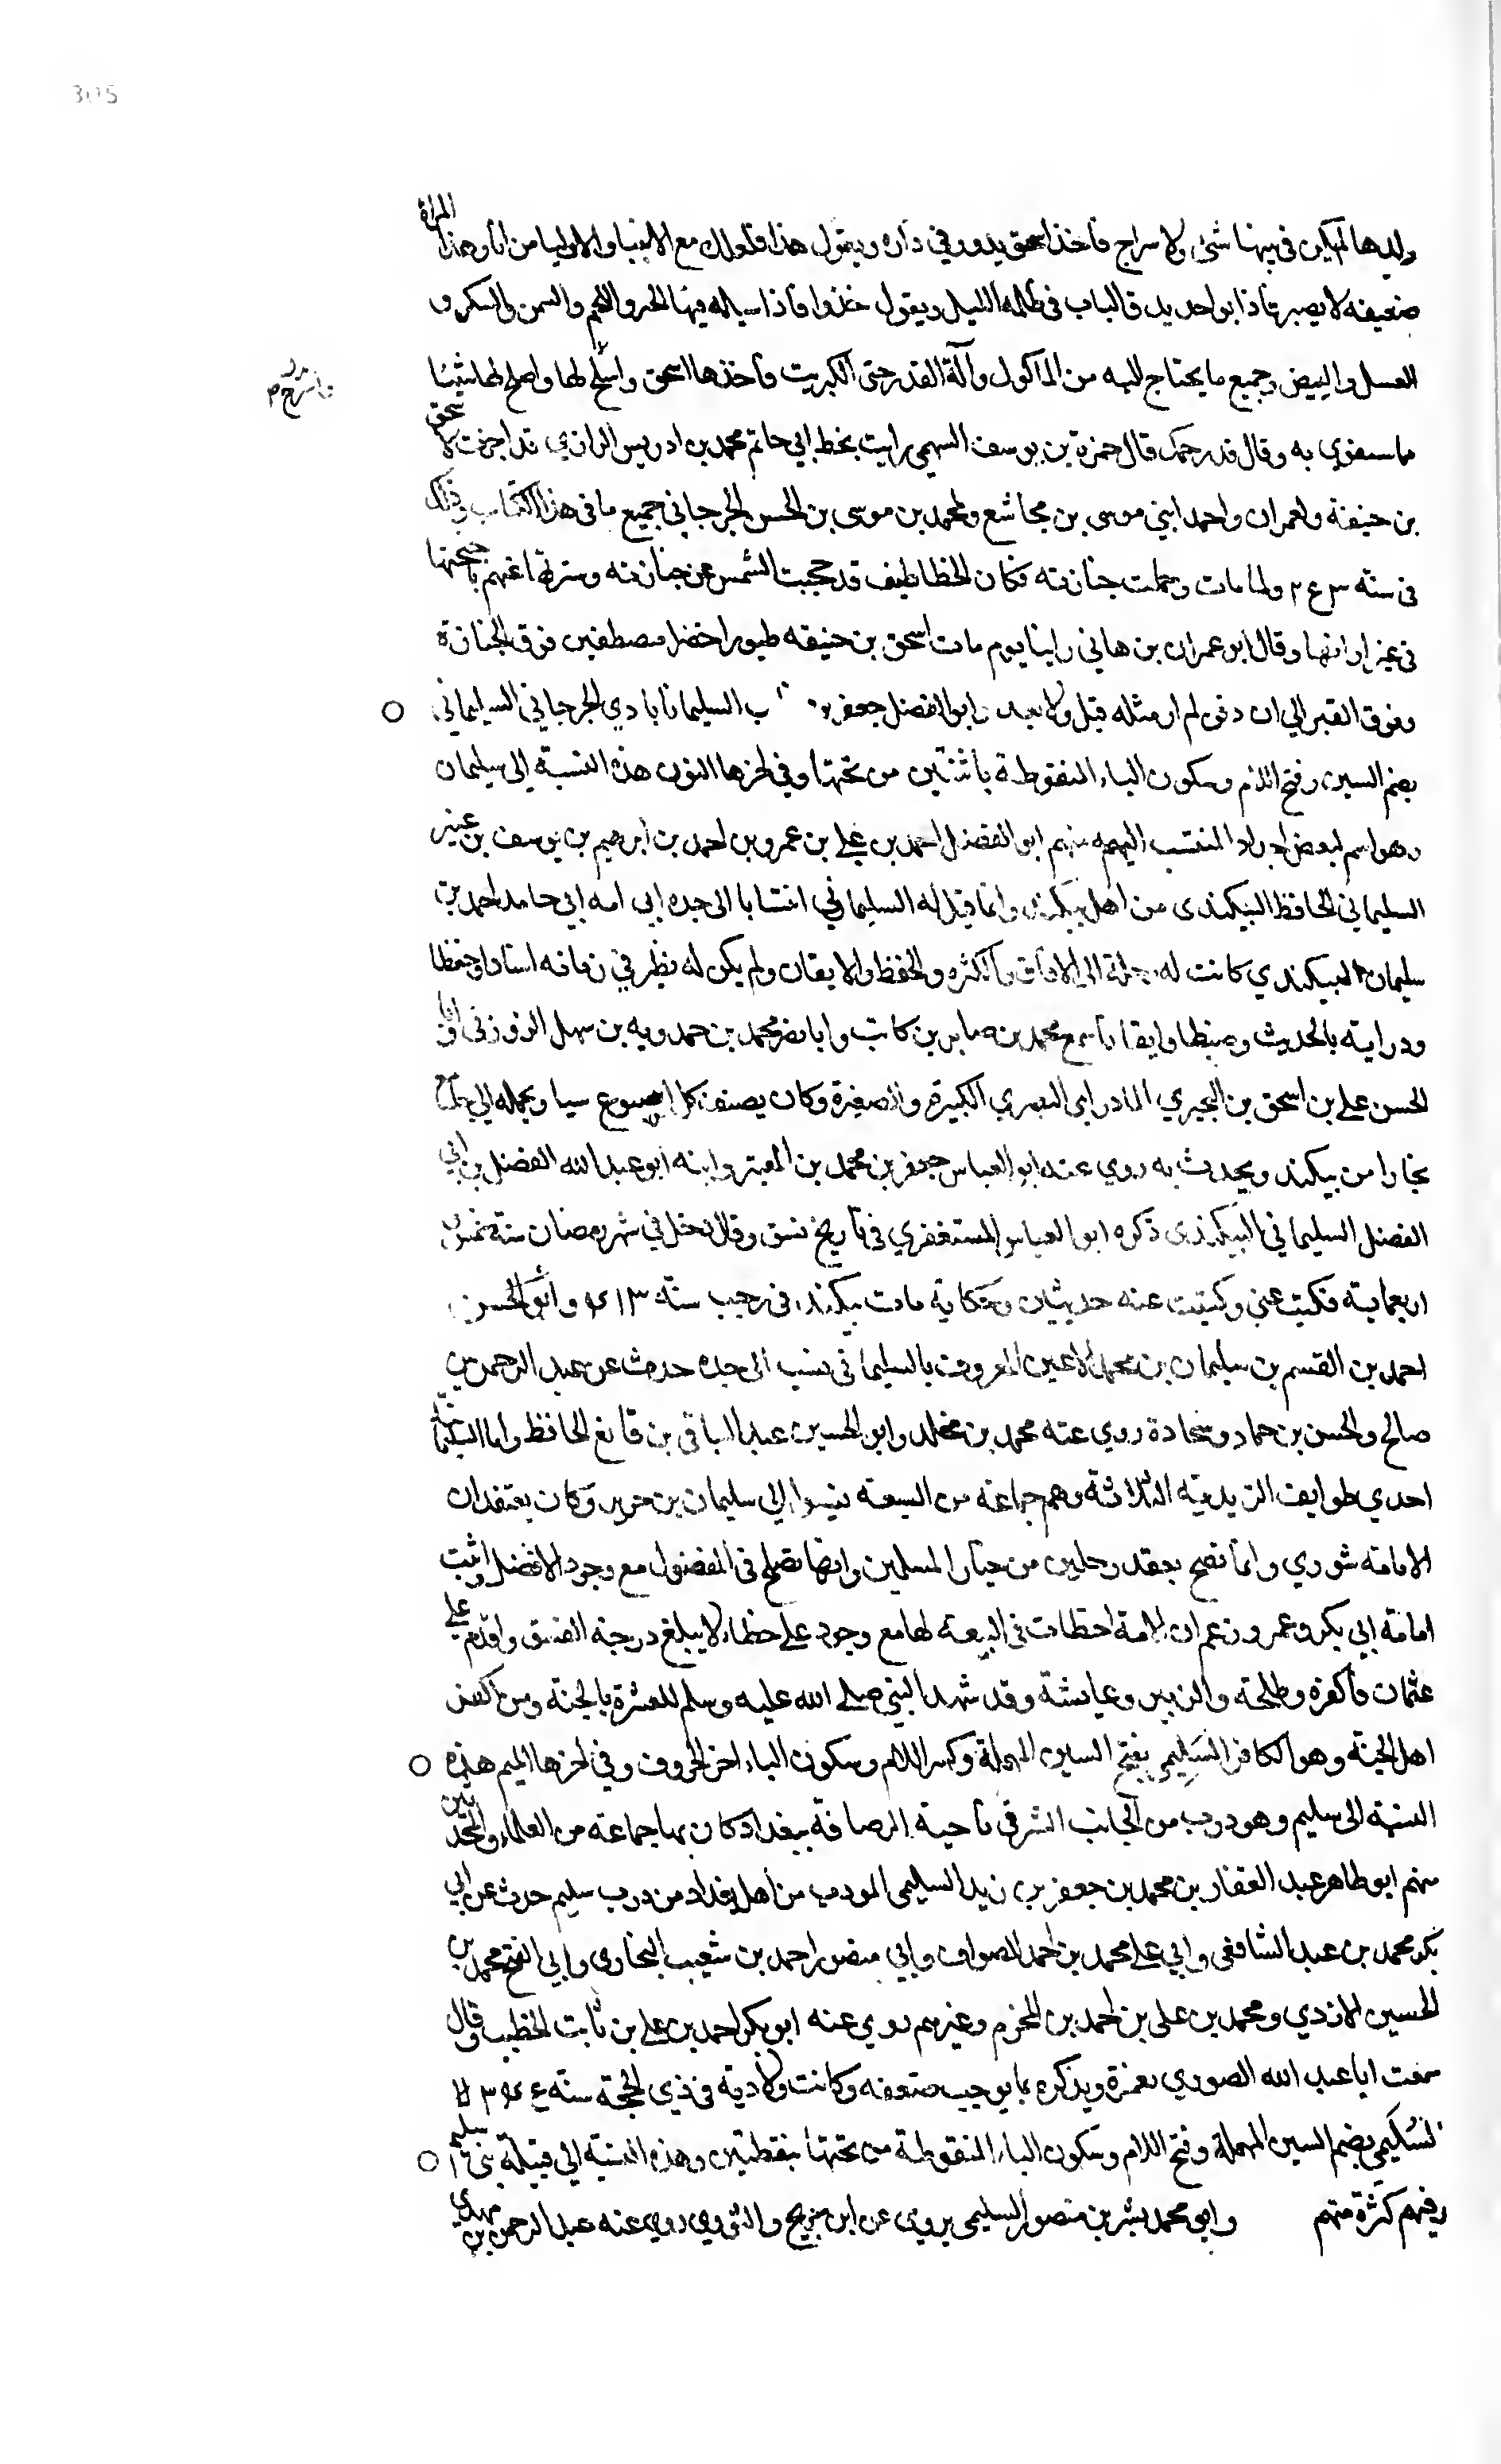 305
المراة
ولدها لم يكن في بيتها شئ ولا سراج فاخذ اسحق يدور في داره ويقول هذا قلولك مع الانبيا والاوليا من انا وهذا
ضعيفه لا يصبر فاذا بواحد يدق الباب في ظلمة الليل ويقول خذوا فاذا سياله فيها الخبز واللحم والسمن والسكر و
العسل والبيض وجميع ما يحتاج اليه من الماكول وآلة القدر حتى الكبريت فاخذها اسحق واسرج لها واصلح لها شيئا
ما ستقوي به وقال قد رحمك قال حمزة بن يوسف السهمي رايت بخط ابي حاتم محمد بن ادريس الرازي قد اجزت لاسحق
بن حنيفة ولعمران واحمد ابني موسى بن مجاشع ولمحمد بن موسى بن الحسن الجرجاني جميع ما في هذا الكتاب وذلك
في سنة ٢٤٣ ولما مات وحملت جنازته فكان الخطاطيف قد حجبت الشمس عن جنازته وسترتها عنهم باجنحتها
في غير اوانها وقال ابو عمران بن هاني راينا يوم مات اسحق بن حنيفه طيورا خضرا مصطفين فوق الجنازة
وفوق القبر الي ان دفن لم ار مثله قبل ولا بعد وابو الفضل جعفر ب السليمانابادي الجرجاني السليماني
بضم السين وفتح اللام وسكون الياء المنقوطة باثنتين من تحتها وفي اخرها النون هذه النسبة الى سليمان
وهو اسم لبعض اجداد المنتسب اليه منهم ابو الفضل احمد بن علي بن عمرو بن احمد بن ابرهيم بن يوسف بن عنبر
السليماني الحافظ البيكندى من اهل بيكند وانما قيل له السليماني انتسابا الى جده ابي امه ابي حامد احمد بن
سليمان البيكندي كانت له رحلة الى الافاق والكثره والحفظ والاتقان ولم يكن له نظير في زمانه اسنادا وحفظا
ودراية بالحديث وضبطا واتقانا سمع محمد بن صابر بن كاتب وابا نصر محمد بن حمدويه بن سهل المروزي وابا
الحسن علي بن اسحق بن البحيري المادرايي البصري الكبيرة والصغيرة وكان يصنف كل اسبوع شيا ويحمله الي جامع
بخارا من بيكند ويحدث به روي عنه ابو العباس جعفر بن محمد بن المعتز وابنه ابو عبد الله الفضل بن ابي
الفضل السليماني البيكندى ذكره ابو العباس المستغفري في تاريخ نسف وقال دخل في شهر رمضان سنة خمس
اربعماية فكتب عني وكتبت عنه حديثين وحكاية مات ببيكند في رجب سنة ٤١٣ وابو الحسن
احمد بن القسم بن سليمان بن محمد الاعين المعروف بالسليماني نسب الى جده حدث عن عبد الرحمن بن
صالح والحسن بن حماد وسجادة روي عنه محمد بن مخلد وابو الحسين عبد الباقي بن قانع الحافظ واما السليمانية
احدي طوايف الزيدية الثلاثة وهم جماعة من الشيعه نسبوا الي سليمان بن جرير وكان يعتقد ان
الامامة شوري وانما تصح بعقد رجلين من خيار المسلمين وانها تصلح في المفضول مع وجود الافضل واثبت
امامة ابي بكر وعمر وزعم ان الامة اخطات في البيعة لهما مع وجود علي خطاء لا يبلغ درجة الفسق واقدم علي
عثمان فاكفره وطلحة والزبير وعايشة وقد شهد النبي صلى الله عليه وسلم للعشرة بالجنة ومن اكفر
اهل الجنة وهو الكافر السَلِيمي بفتح السين المهملة وكسر اللام وسكون الياء اخر الحروف وفي اخرها الميم هذه
النسبة الى سليم وهو درب من الجانب الشرقي ناحية الرصافة ببغداد كان بها جماعة من العلماء والمحدثين
منهم ابو طاهر عبد الغفار بن محمد بن جعفر بن زيد السليمى المودب من اهل بغداد من درب سليم حدث عن ابي
بكر محمد بن عبد الشافعى وابي علي محمد بن احمد الصواف وابي منصور احمد بن شعيب البخاري وابي الفتح محمد بن
الحسين الازدي ومحمد بن علي بن احمد بن المخرم وغيرهم روي عنه ابو بكر احمد بن علي بن ثابت الخطيب وقال
سمعت ابا عبد الله الصوري يغمزه ويذكره بما يوجب ضعفه وكانت ولادته في ذي الحجة سنة
السُلَيمي بضم السين المهملة وفتح اللام وسكون الياء المنقوطة من تحتها بنقطتين وهذه النسبة الي قبيلة بني سليم
وفيهم كثرة منهم وابو محمد بشر بن منصور السليمى يروى عن ابن جريج والثوري روى عنه عبد الرحمن بن مهدي